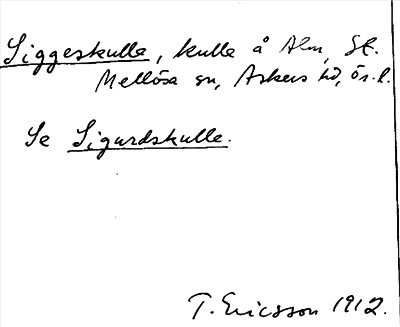 Siggeskulle, kulle å Alm, St.
Mellösa sn, Askers hd, ör. l.
Se Sigurdskulle.
T. Ericsson 1912.